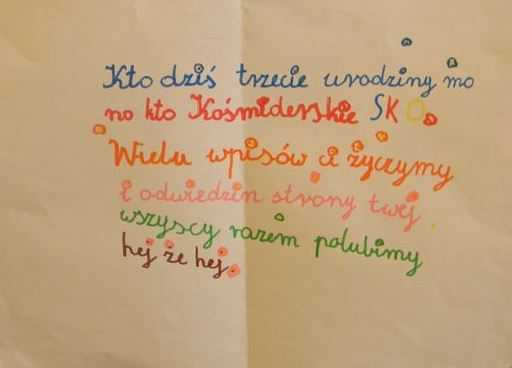 Kto dziś trzecie urodziny mo
no kto Kośmiderskie SKO
Wielu wpisów ci życzymy
i odwiedzin strony twej
wszyscy razem polubimy
hej że hej